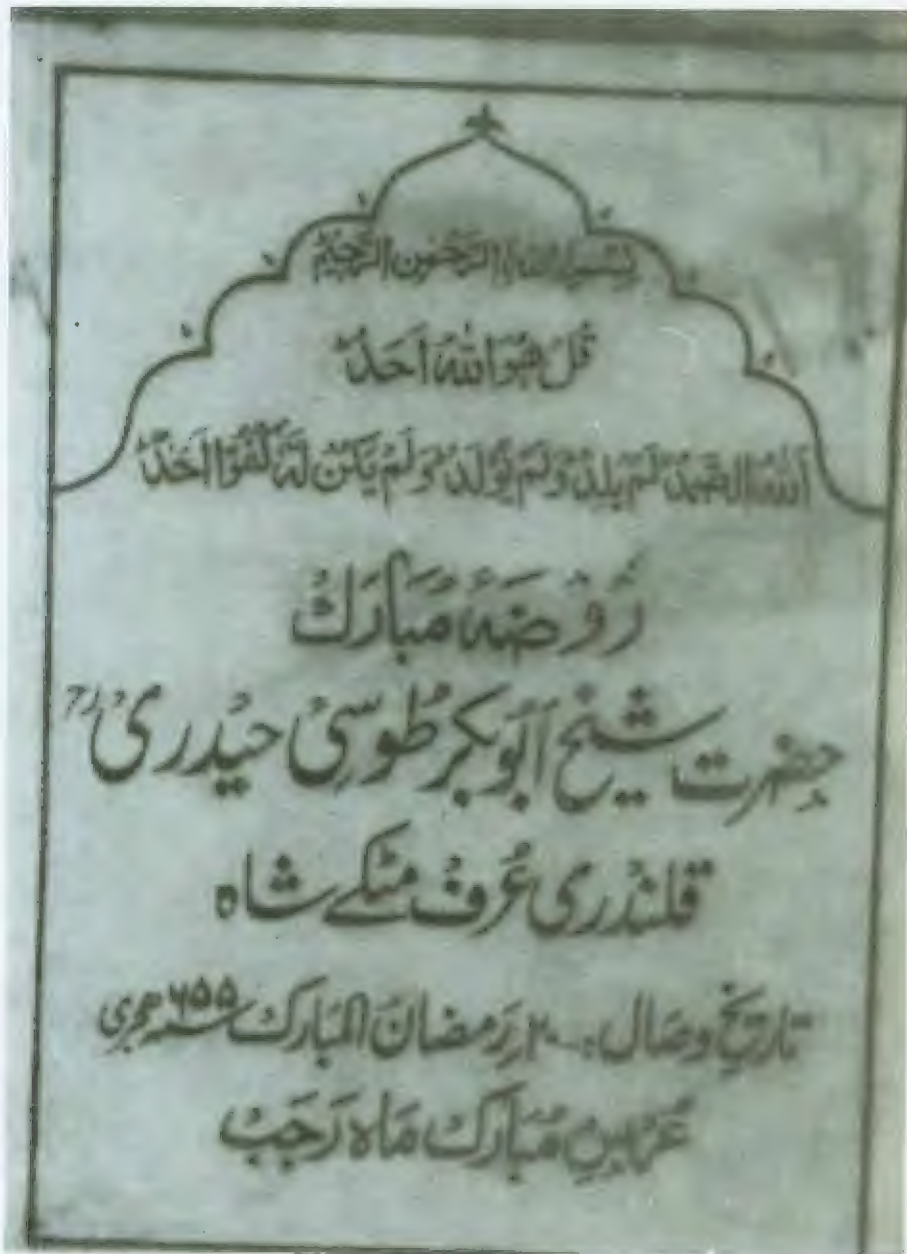 بِسْمِ اللهِ الرَّحْمٰنِ الرَّحِيْمِ
قُلْ هُوَ اللهُ اَحَدٌ
اَللهُ الصَّمَدُ لَمْ يَلِدْ وَلَمْ يُوْلَدْ وَلَمْ يَكُنْ لَهٗ كُفُوًا اَحَدٌ
رُوضَہٴ مُبَارَک
حضرت شیخ ابُوبکر طُوسی حیدری رح
قلندری عُرف مٹکے شاہ
تاریخ وصال :۔ ۲۰ رَمضان المبارک ۶۵۵ سنہ ھجری
عُرسِ مُبَارک مَاہ رَجَب